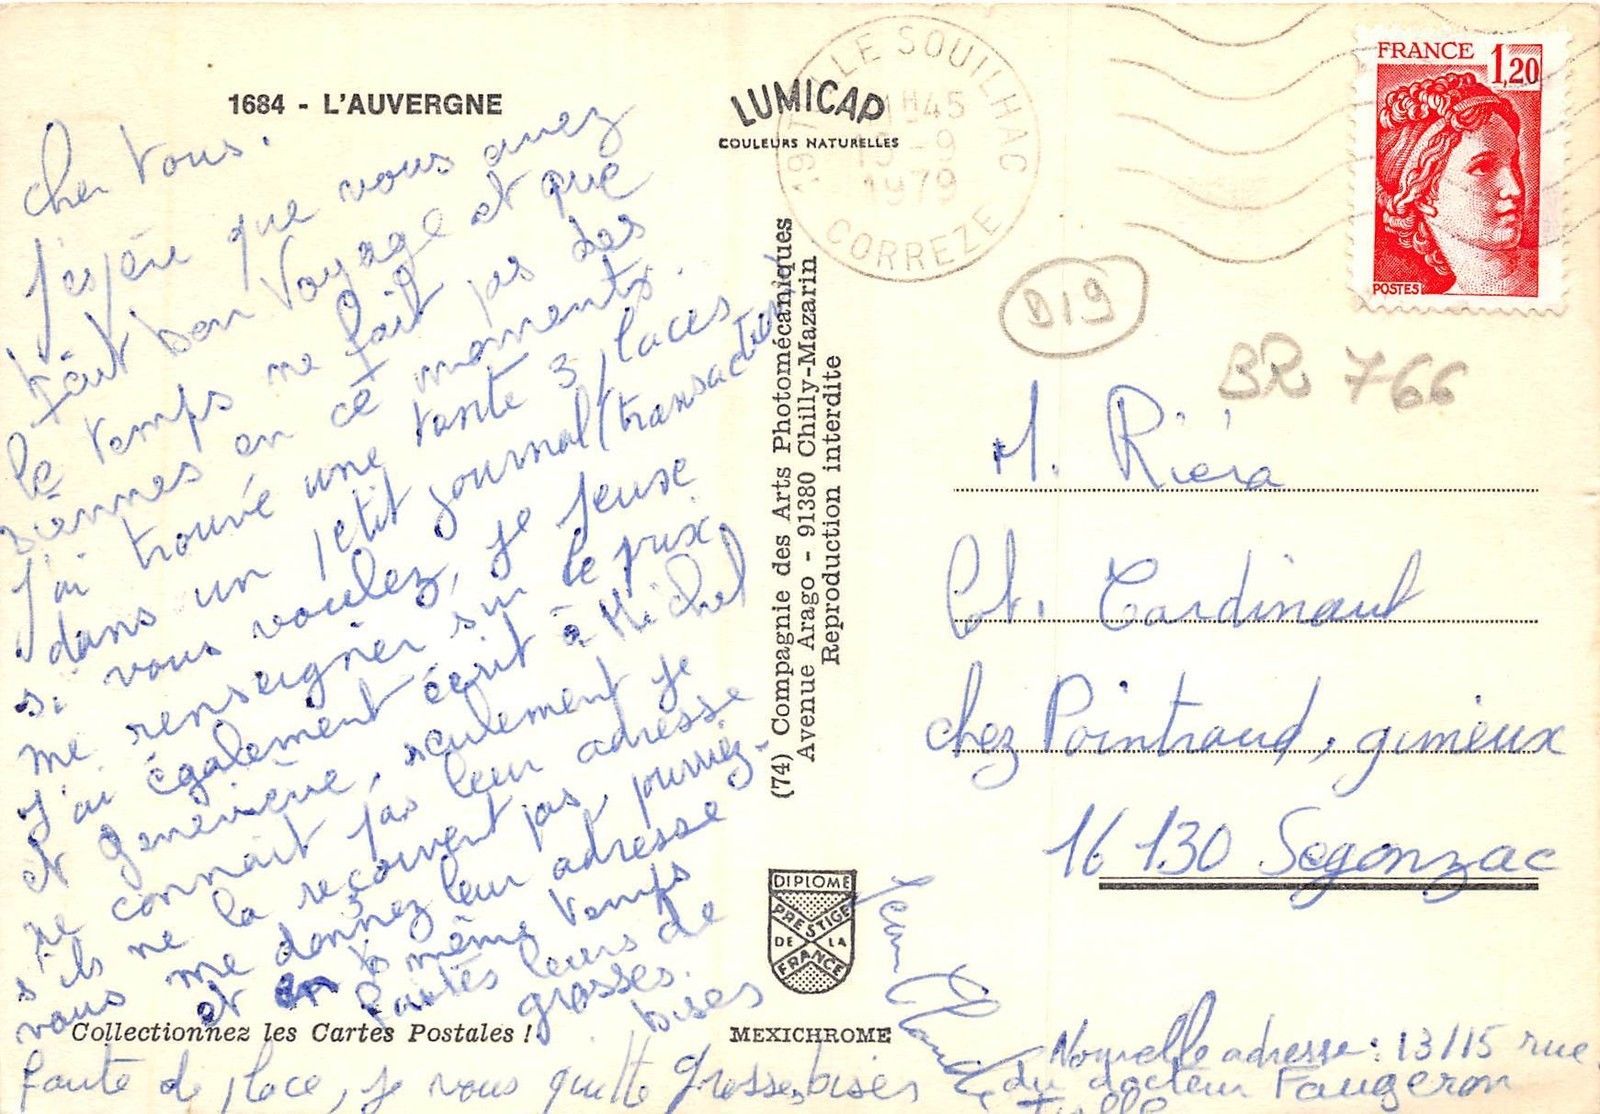 1684 - L'AUVERGNE
Cher vous.
J'espère que vous avez
fait bon voyage et que
le temps ne fait pas des
siennes en ce moments.
J'ai trouvé une tante 3 places
dans un petit journal (transac
si vous voulez, je peux
me renseigner sur le prix
J'ai également écrit à Michel
et Geneviève, seulement je
ne connait pas leur adresse
s'ils ne la reçoivent pas, pourriez-
vous me donnez leur adresse
et en même temps
faites leurs de
grosses
bises
faute de place, je vous quitte Grosses bises
Jean Claude
Collectionnez les Cartes Postales !
LUMICAP
COULEURS NATURELLES
(74) Compagnie des Arts Photomécaniques
Avenue Arago - 91380 Chilly-Mazarin
Reproduction interdite
DIPLOME
PRESTIGE
DE LA
FRANCE
MEXICHROME
19 TULLE SOUILHAC
1H45
9
1979
CORREZE
FRANCE 1,20
POSTES
D19
BR 766
M. Riéra
Cardinaut
chez Pointraud, gimeux
16 130 Segonzac
Nouvelle adresse : 13/15 rue
du docteur Faugeron
Tulle